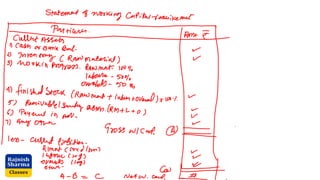 Statement of working Capital requirement
Particulars
Amo ₹
Current Assets
1) Cash or Bank Bal.
2) Inventory (Raw material)
3) Work in Progress. Raw mat. 100%
labour - 50%
overheads - 50%
4) Finished Stock (Raw mat + labour + overhead) × 100%
5) Receivable / Sundry debtors. (Rm + L + O)
6) Prepaid in adv.
7) Any other
Gross w/Cap. (A)
less - Current
A - B = C
Net w. Cap
Rajnish
Sharma
Classes